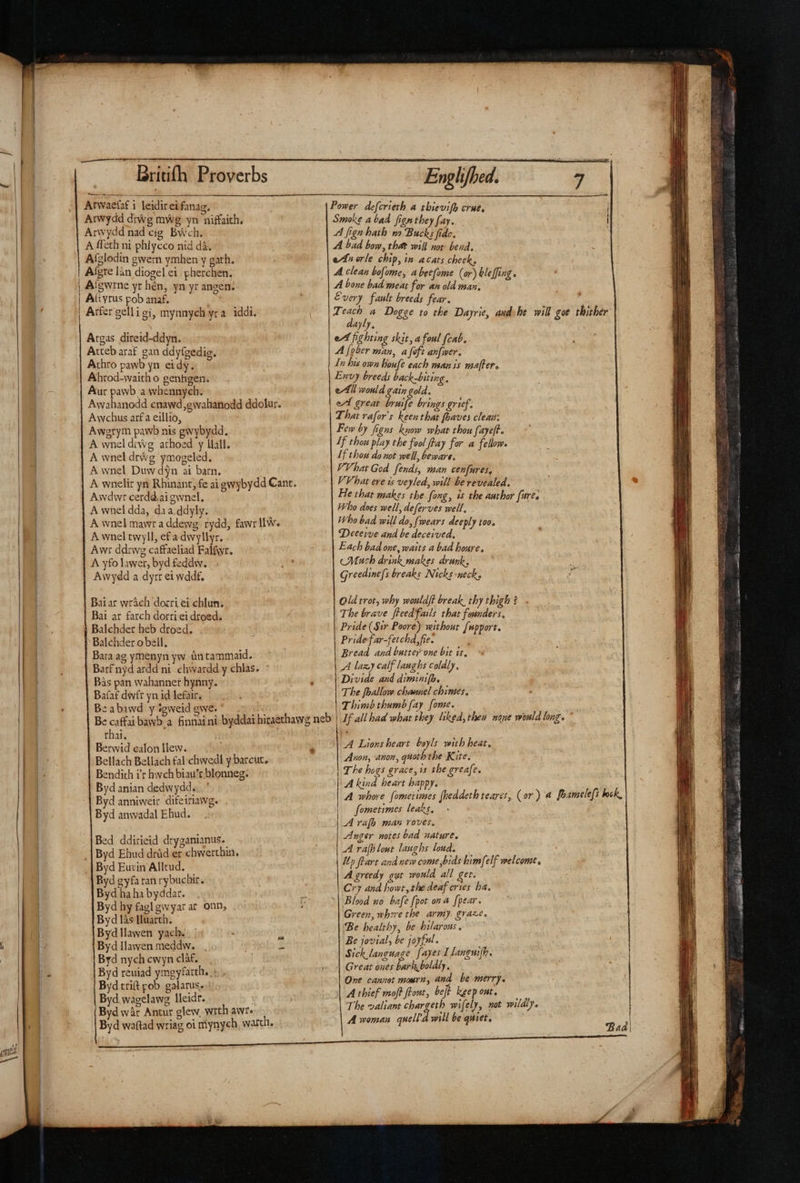 Britiſh Proverbs
Arwaeſaf i leidir ei fanag.
Arwydd drŵg mŵg yn niffaith.
Arwydd nad eig Bŵch.
A ſſeth ni phlycco nid dâ.
Aſglodin gwern ymhen y gath.
Aſgre lân diogel ei pherchen.
Aſgwrne yr hên, yn yr angen.
Aſtyrus pob anaf.
Arfer gelli gi, mynnych yr a iddi.
Atgas direid-ddyn.
Atteb araf gan ddyſgedig.
Athro pawb yn ei dy.
Ahrod-waith o genhgen.
Aur pawb a whennych.
Awahanodd cnawd, gwahanodd ddolur.
Awchus arf a eillio,
Awgrym pawb nis gwybydd.
A wnel drŵg arhoed y llall.
A wnel drŵg ymogeled.
A wnel Duw dŷn ai barn.
A wnelir yn Rhinant, fe ai gwybydd Cant.
Awdwr cerdd ai gwnel.
A wnel dda, da a ddyly.
A wnel mawr a ddewg rydd, fawr llŵ.
A wnel twyll, ef a dwyllyr.
Awr ddrwg caffaeliad Falſwr.
A yfo lawer, byd feddw.
Awydd a dyrr ei wddf.
Bai ar wrâch dorri ei chlun.
Bai ar farch dorri ei droed.
Balchder heb droed.
Balchder o bell.
Bara ag ymenyn yw ûn tammaid.
Barf nŷd ardd ni chwardd y chlas.
Bâs pan wahanner hynny.
Baſaf dwfr yn id lefair.
Be a biwd y ſgweid gwe.
Be caffai bawb a finnai ni byddai hiraethawg neb
rhai.
Berwid calon llew.
Bellach Bellach fal chwedl y barcut.
Bendith i'r hwch biau'r blonneg.
Byd anian dedwydd.
Byd anniweir difeiriawg.
Byd anwadal Ehud.
Bed ddirieid dryganianus.
Byd Ehud drûd er chwerthin.
Byd Euvin Alltud.
Byd gyfa ran rybuchir.
Byd ha ha byddar.
Byd hy fagl gwyar ar onn,
Byd lâs lluarth.
Byd llawen yach.
Byd llawen meddw.
Byd nych cwyn clâf.
Byd reuiad ymgyfarth.
Byd trift pob galarus.
Byd wagelawg lleidr.
Byd wâr Antur glew, wrth awr.
Byd waſtad wriag oi mynych warth.
Engliſhed. 7
Power deſcrieth a thieviſh crue.
Smoke a bad ſign they ſay.
A ſign hath no Bucks ſide.
A bad bow, that will not bend.
An orle chip, in a cats cheek.
A clean boſome, a beeſome (or) bleſſing.
A bone bad meat for an old man.
Every fault breeds fear.
Teach a Dogge to the Dayrie, and he will goe thither
dayly.
A fighting skit, a foul ſcab.
A ſober man, a ſoft anſwer.
In his own houſe each man is maſter.
Envy breeds back-biting.
All would gain gold.
A great bruiſe brings grief.
That raſor's keen that ſhaves clean:
Few by ſigns know what thou ſayeſt.
If thou play the fool ſtay for a fellow.
If thou do not well, beware.
VVhat God ſends, man cenſures,
VVhat ere is veyled, will be revealed.
He that makes the ſong, is the author ſure.
Who does well, deſerves well.
Who bad will do, ſwears deeply too.
Deceive and be deceived.
Each bad one, waits a bad houre.
Much drink makes drunk,
Greedineſs breaks Nicks-neck,
Old trot, why wouldſt break thy thigh?
The brave ſteed fails that founders.
Pride (Sir Poore) without ſupport.
Pride far-fetchd, fie.
Bread and butter one bit is.
A lazy calf laughs coldly.
Divide and diminiſh.
The ſhallow channel chimes.
Thimb thumb ſay ſome.
If all had what they liked, then none would long.
A Lions heart boyls with heat.
Anon, anon, quoth the Kite.
The hogs grace, is the greaſe.
A kind heart happy.
A whore ſometimes ſheddeth teares, (or) a ſhameleſs bock,
ſometimes leaks.
A raſh man roves.
Anger notes bad nature.
A raſh lout laughs loud.
Up ſtart and new come, bids himſelf welcome.
A greedy gut would all get.
Cry and howt, the deaf cries ha.
Blood no baſe ſpot on a ſpear.
Green, where the army graze.
Be healthy, be hilarous.
Be jovial, be joyful.
Sick language ſayes I languiſh.
Great ones bark boldly.
One cannot mourn, and be merry.
A thief moſt ſtout, beſt keep out.
The valiant chargeth wiſely, not wildly.
A woman quell'd will be quiet.
Bad